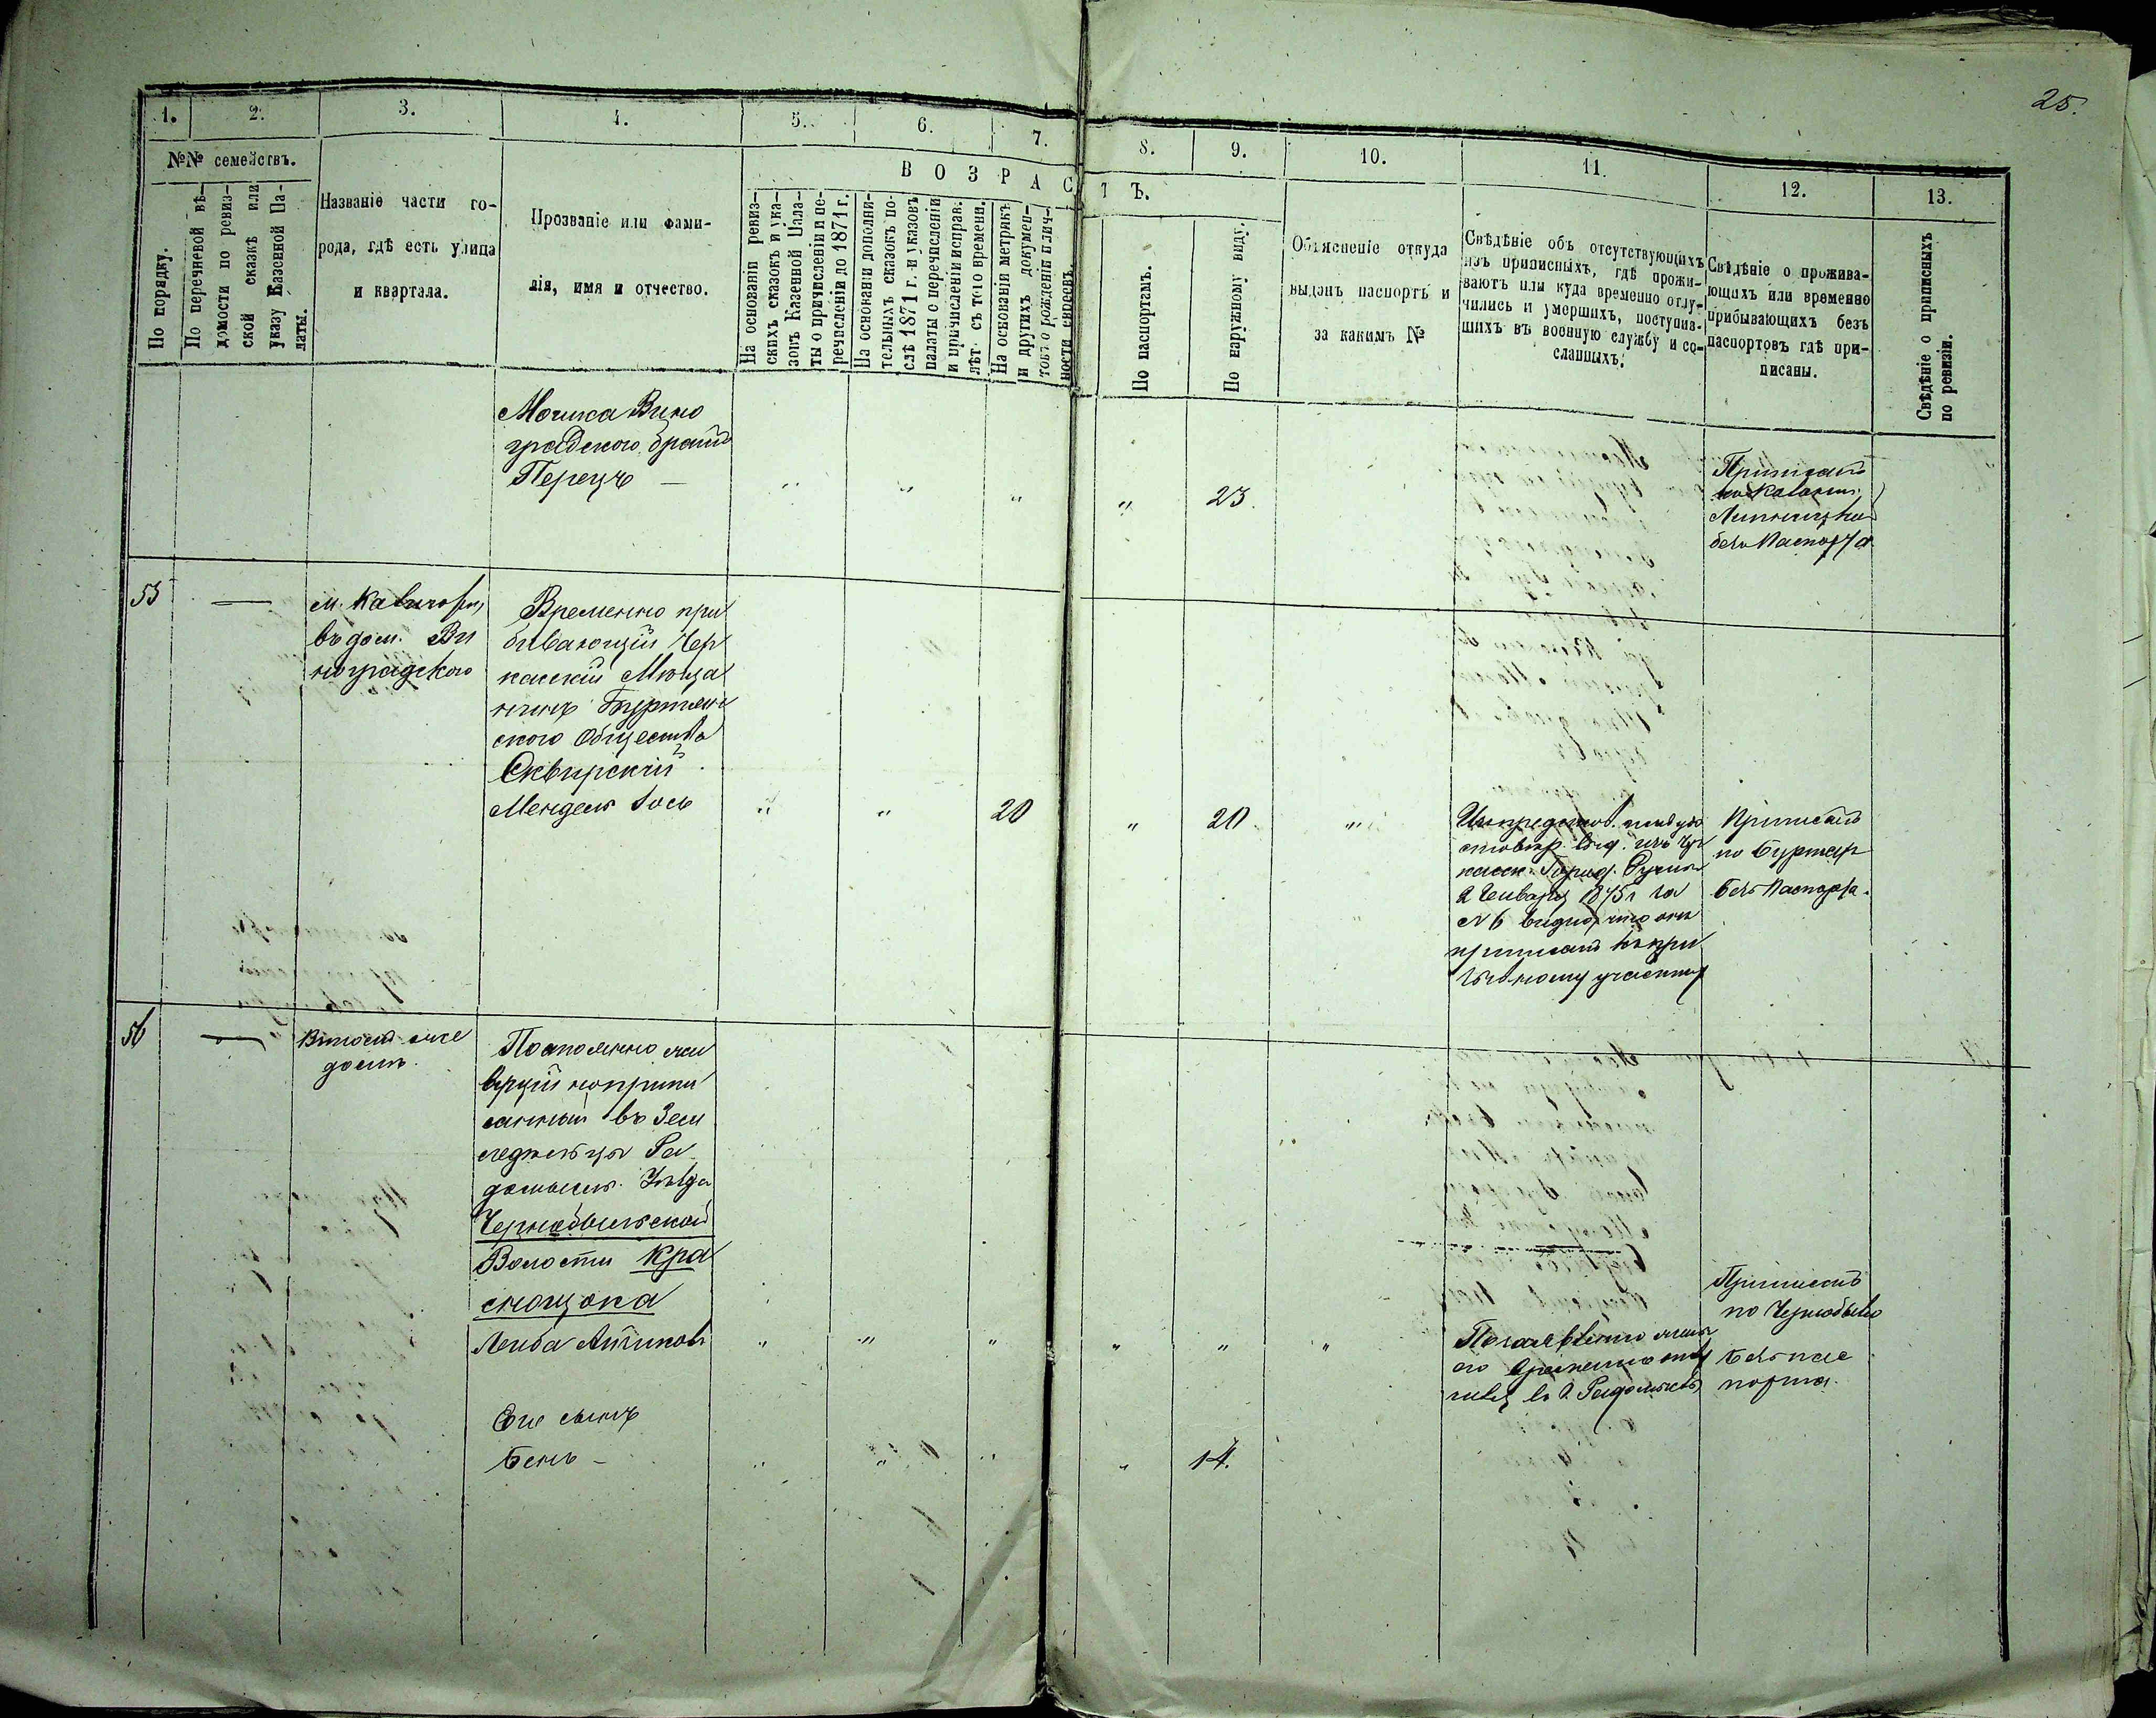 25.
1. 2. 3. 4. 5. 6. 7. 8. 9. 10. 11. 12. 13.
№№ семействъ.
По порядку.
По перечневой вѣ-
домости по ревиз-
ской сказкѣ или
указу Казенной Па-
латы.
Названіе части го-
рода, гдѣ есть улица
и квартала.
Прозваніе или фами-
лія, имя и отчество.
ВОЗРАСТЪ.
На основаніи ревиз-
скихъ сказокъ и ука-
зовъ Казенной Пала-
ты о причисленіи и пе-
речисленіи до 1871 г.
На основаніи дополни-
тельныхъ сказокъ по-
слѣ 1871 г. и указовъ
палаты о перечисленіи
и причисленіи исправ.
лѣт съ того времени.
На основаніи метрикъ
и другихъ докумен-
товъ о рожденіи и лич-
ности евреевъ.
По паспортамъ.
По наружному виду.
Объясненіе откуда
выданъ паспортъ и
за какимъ №
Свѣдѣніе объ отсутствующихъ
изъ приписныхъ, гдѣ прожи-
ваютъ или куда временно отлу-
чились и умершихъ, поступив-
шихъ въ военную службу и со-
сланныхъ.
Свѣдѣніе о прожива-
ющихъ или временно
прибывающихъ безъ
паспортовъ гдѣ при-
писаны.
Свѣдѣніе о приписныхъ
по ревизіи.
Мошка Вино
градского братъ
Перецъ — " " " " 23.
Приписанъ
Липницка
безъ Паспорта
55 —
въ дом. Ви
ноградского
Временно при
бивающій Чер
касскій Мѣща
нинъ
ского Общества
Сквирскій
Мендель Іось " " 20 " 20 "
касск. Город.
2 Января 1875 г. за
№ 6 видно, что онъ
приписанъ къ при
зывному участку
Приписанъ
по
безъ Паспорта.
56 —
домъ.
Постоянно жи
вущій неприпи
санный въ Земл
едѣльцы Ра
домысль. Уѣзда
Чернобыльской
Волости Кра
снощока
Лейба " " " " " "
въ г. Радомыслѣ
Приписанъ
по Чернобылю
безъ пас
порта.
Его сынъ
Бень - " " " " 14.